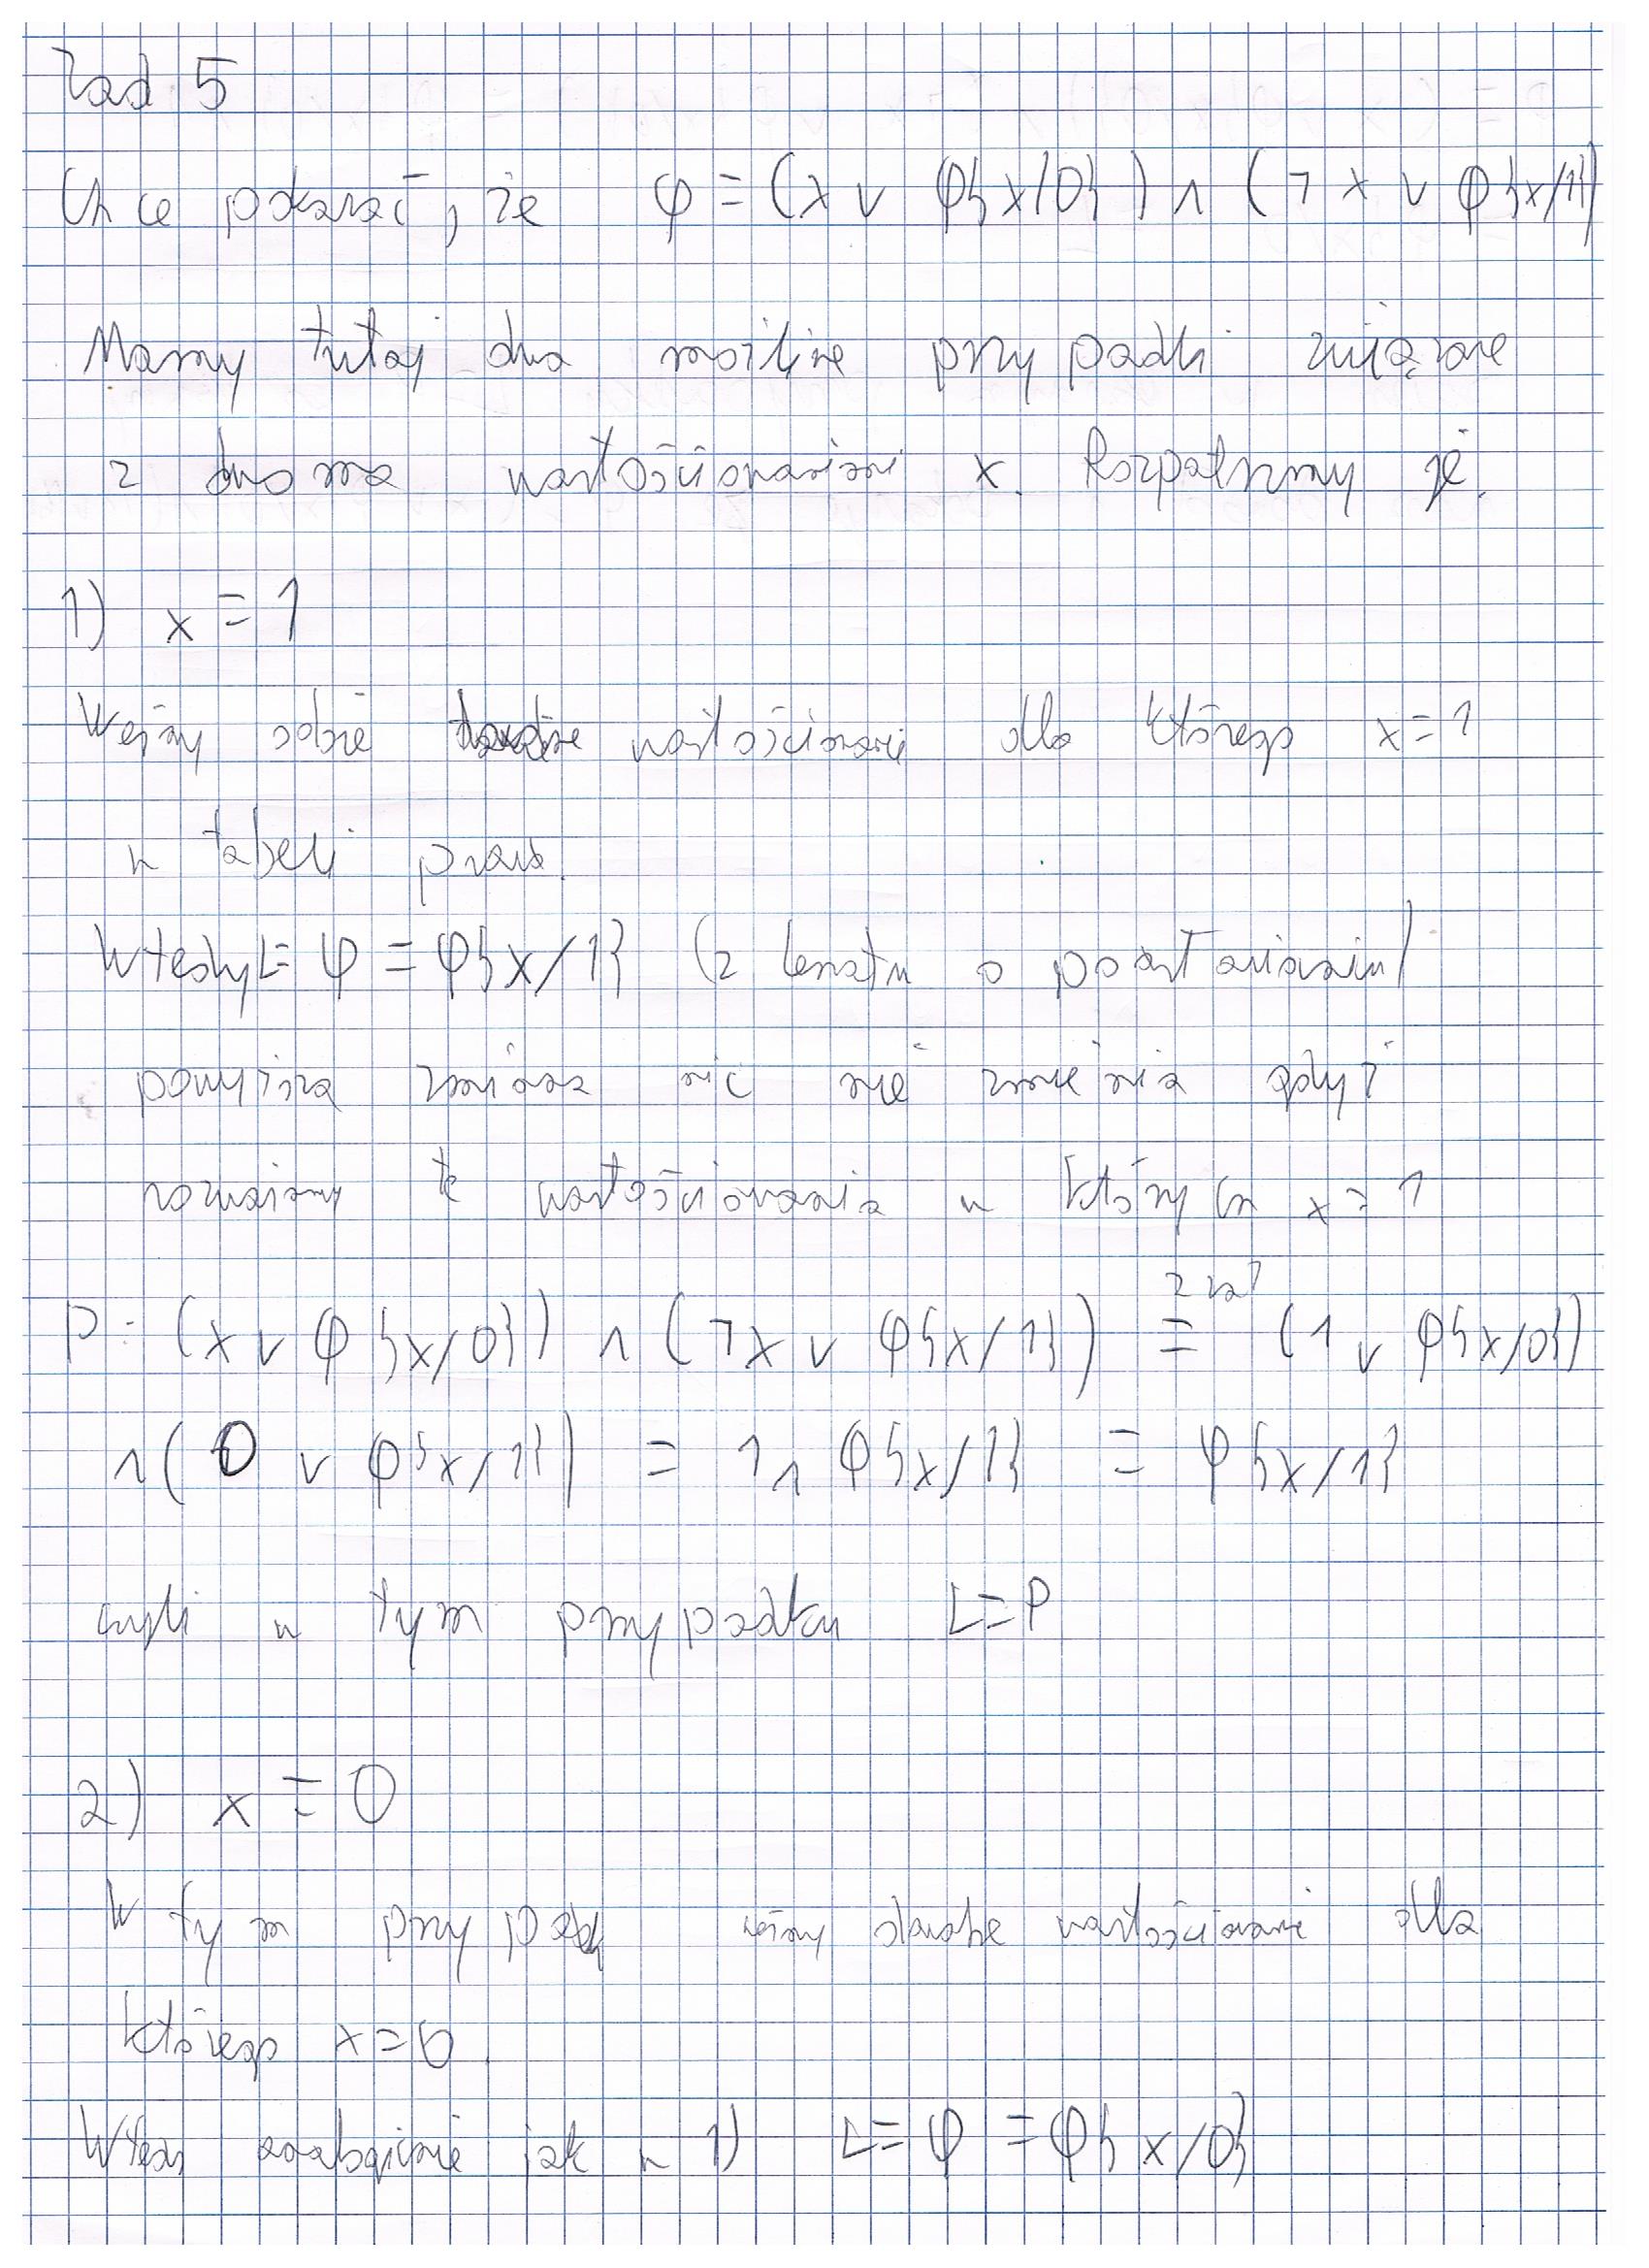 Zad 5
Chcę pokazać, że φ ≡ (x ∨ φ{x/0}) ∧ (¬x ∨ φ{x/1})
Mamy tutaj dwa możliwe przypadki związane
z dwoma wartościowaniami x. Rozpatrzmy je.
1) x = 1
Weźmy sobie wartościowanie dla którego x=1
w tabeli prawd.
Wtedy L= φ = φ{x/1} (z lematu o podstawianiu)
powyższa zmiana nic nie zmienia gdyż
rozważamy te wartościowania w których x=1
P: (x ∨ φ{x/0}) ∧ (¬x ∨ φ{x/1}) z zał = (1 ∨ φ{x/0})
∧(0 ∨ φ{x/1}) = 1 ∧ φ{x/1} = φ{x/1}
czyli w tym przypadku L=P
2) x = 0
W tym przypadku weźmy dowolne wartościowanie dla
którego x=0.
Wtedy analogicznie jak w 1) L= φ = φ{x/0}